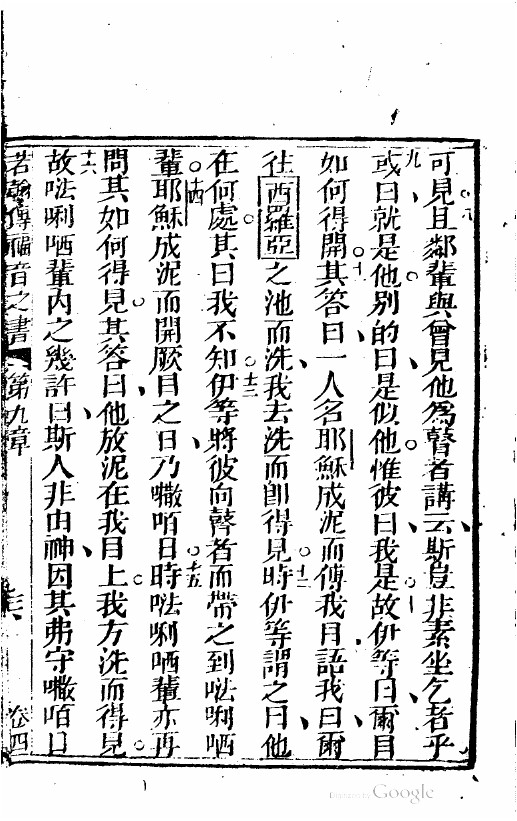 可見。八且鄰輩與曾見他為瞽者講云、斯豈非素坐乞者乎。
九或曰、就是他。別的曰、是似他。惟彼曰、我是。十故伊等曰、爾目
如何得開。十一其答曰、一人名耶穌成泥而傅我目、語我曰、爾
往西羅亞之池而洗、我去洗而即得見。十二時伊等謂之曰、他
在何處。其曰、我不知。十三伊等將彼向瞽者而帶之到𠵽唎哂
輩。十四耶穌成泥而開厥目之日、乃𡃤咟日。十五時𠵽唎哂輩亦再
問其如何得見。其答曰、他放泥在我目上、我方洗而得見。
十六故𠵽唎哂輩內之幾許曰、斯人非由神、因其弗守𡃤咟日
若翰傳福音之書 第九章 卷四
Google